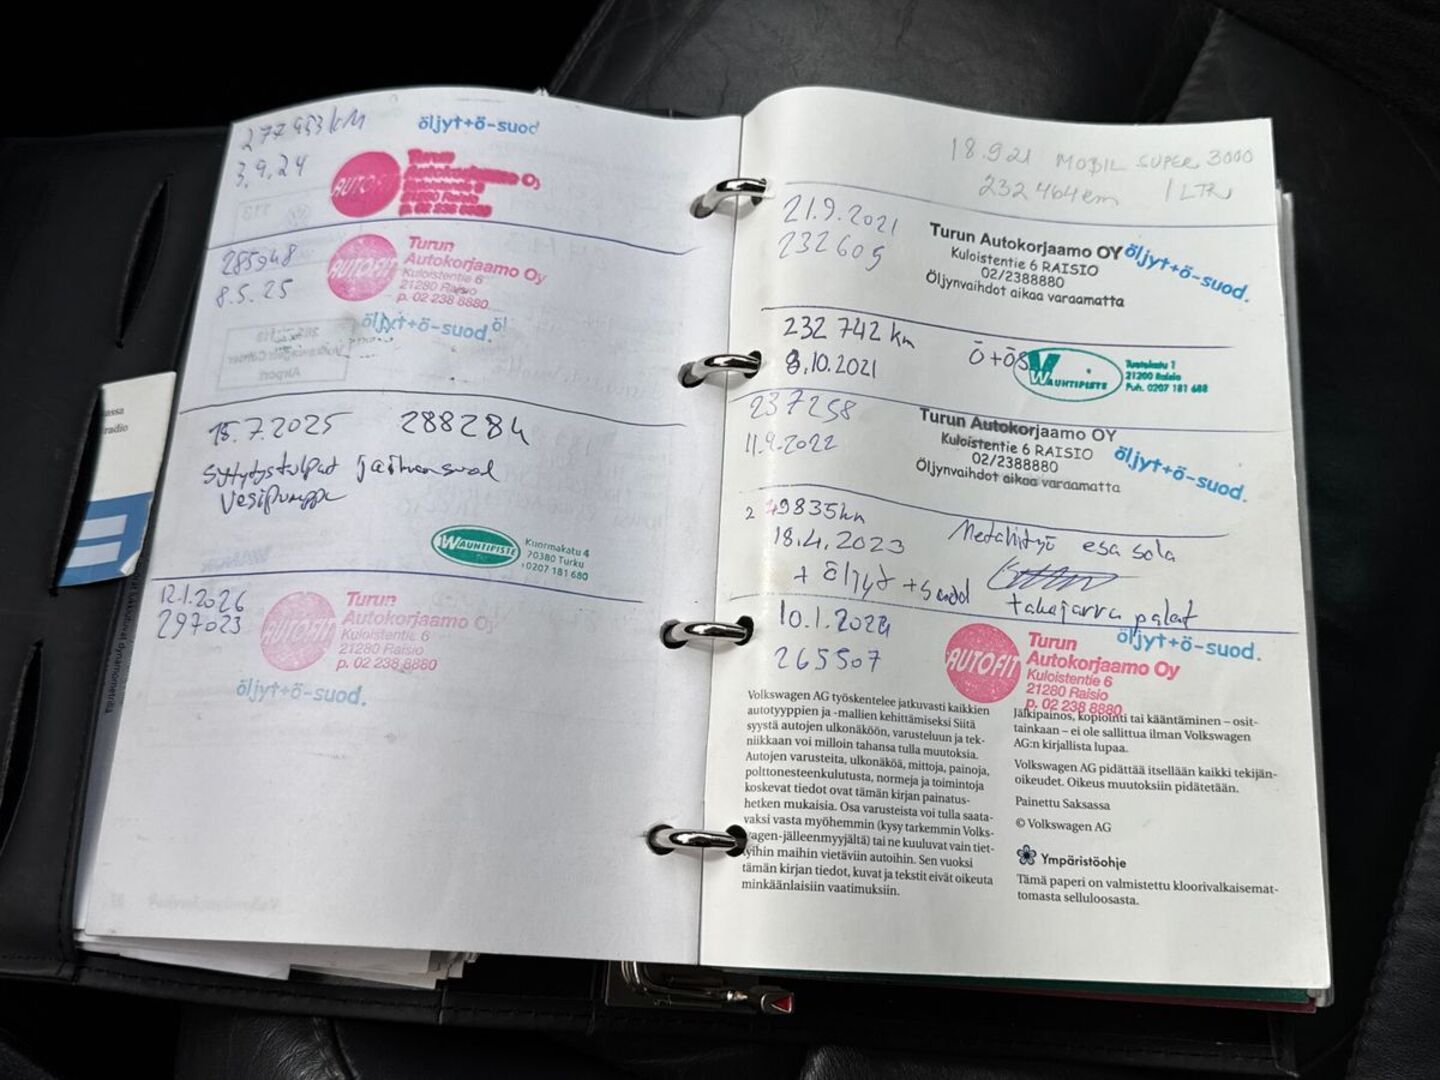 277953 km
3.9.24
öljyt+ö-suod
AUTOFIT
Turun
Autokorjaamo Oy
p. 02 238 8880
285948
8.5.25
AUTOFIT
Turun
Autokorjaamo Oy
Kuloistentie 6
21280 Raisio
p. 02 238 8880
öljyt+ö-suod.
öl
15.7.2025 288284
sytytystulpat jäähansuod
Vesipumppu
WAUNTIPISTE
Kuormakatu 4
70380 Turku
0207 181 680
12.1.2026
297023
AUTOFIT
Turun
Autokorjaamo Oy
Kuloistentie 6
21280 Raisio
p. 02 238 8880
öljyt+ö-suod.
assa
radio
18.9.21 MOBIL SUPER 3000
232 464 km 1 LTR
21.9.2021
232609
Turun Autokorjaamo OY
Kuloistentie 6 RAISIO
02/2388880
Öljynvaihdot aikaa varaamatta
öljyt+ö-suod.
232 742 km
8.10.2021
Ö+ÖS
WAUNTIPISTE
Tuotekatu 1
21200 Raisio
Puh. 0207 181 688
237258
11.9.2022
Turun Autokorjaamo OY
Kuloistentie 6 RAISIO
02/2388880
Öljynvaihdot aikaa varaamatta
öljyt+ö-suod.
249835 km
18.4.2023 Metallityö esa sola
+ öljyt + suod
takajarru palat
10.1.2024
265507
AUTOFIT
Turun
Autokorjaamo Oy
Kuloistentie 6
21280 Raisio
p. 02 238 8880
öljyt+ö-suod.
Volkswagen AG työskentelee jatkuvasti kaikkien
autotyyppien ja -mallien kehittämiseksi Siitä
syystä autojen ulkonäköön, varusteluun ja tek-
niikkaan voi milloin tahansa tulla muutoksia.
Autojen varusteita, ulkonäköä, mittoja, painoja,
polttonesteenkulutusta, normeja ja toimintoja
koskevat tiedot ovat tämän kirjan painatus-
hetken mukaisia. Osa varusteista voi tulla saata-
vaksi vasta myöhemmin (kysy tarkemmin Volks-
wagen-jälleenmyyjältä) tai ne kuuluvat vain tiet-
tyihin maihin vietäviin autoihin. Sen vuoksi
tämän kirjan tiedot, kuvat ja tekstit eivät oikeuta
minkäänlaisiin vaatimuksiin.
Jälkipainos, kopiointi tai kääntäminen – osit-
tainkaan – ei ole sallittua ilman Volkswagen
AG:n kirjallista lupaa.
Volkswagen AG pidättää itsellään kaikki tekijän-
oikeudet. Oikeus muutoksiin pidätetään.
Painettu Saksassa
© Volkswagen AG
Ympäristöohje
Tämä paperi on valmistettu kloorivalkaisemat-
tomasta selluloosasta.